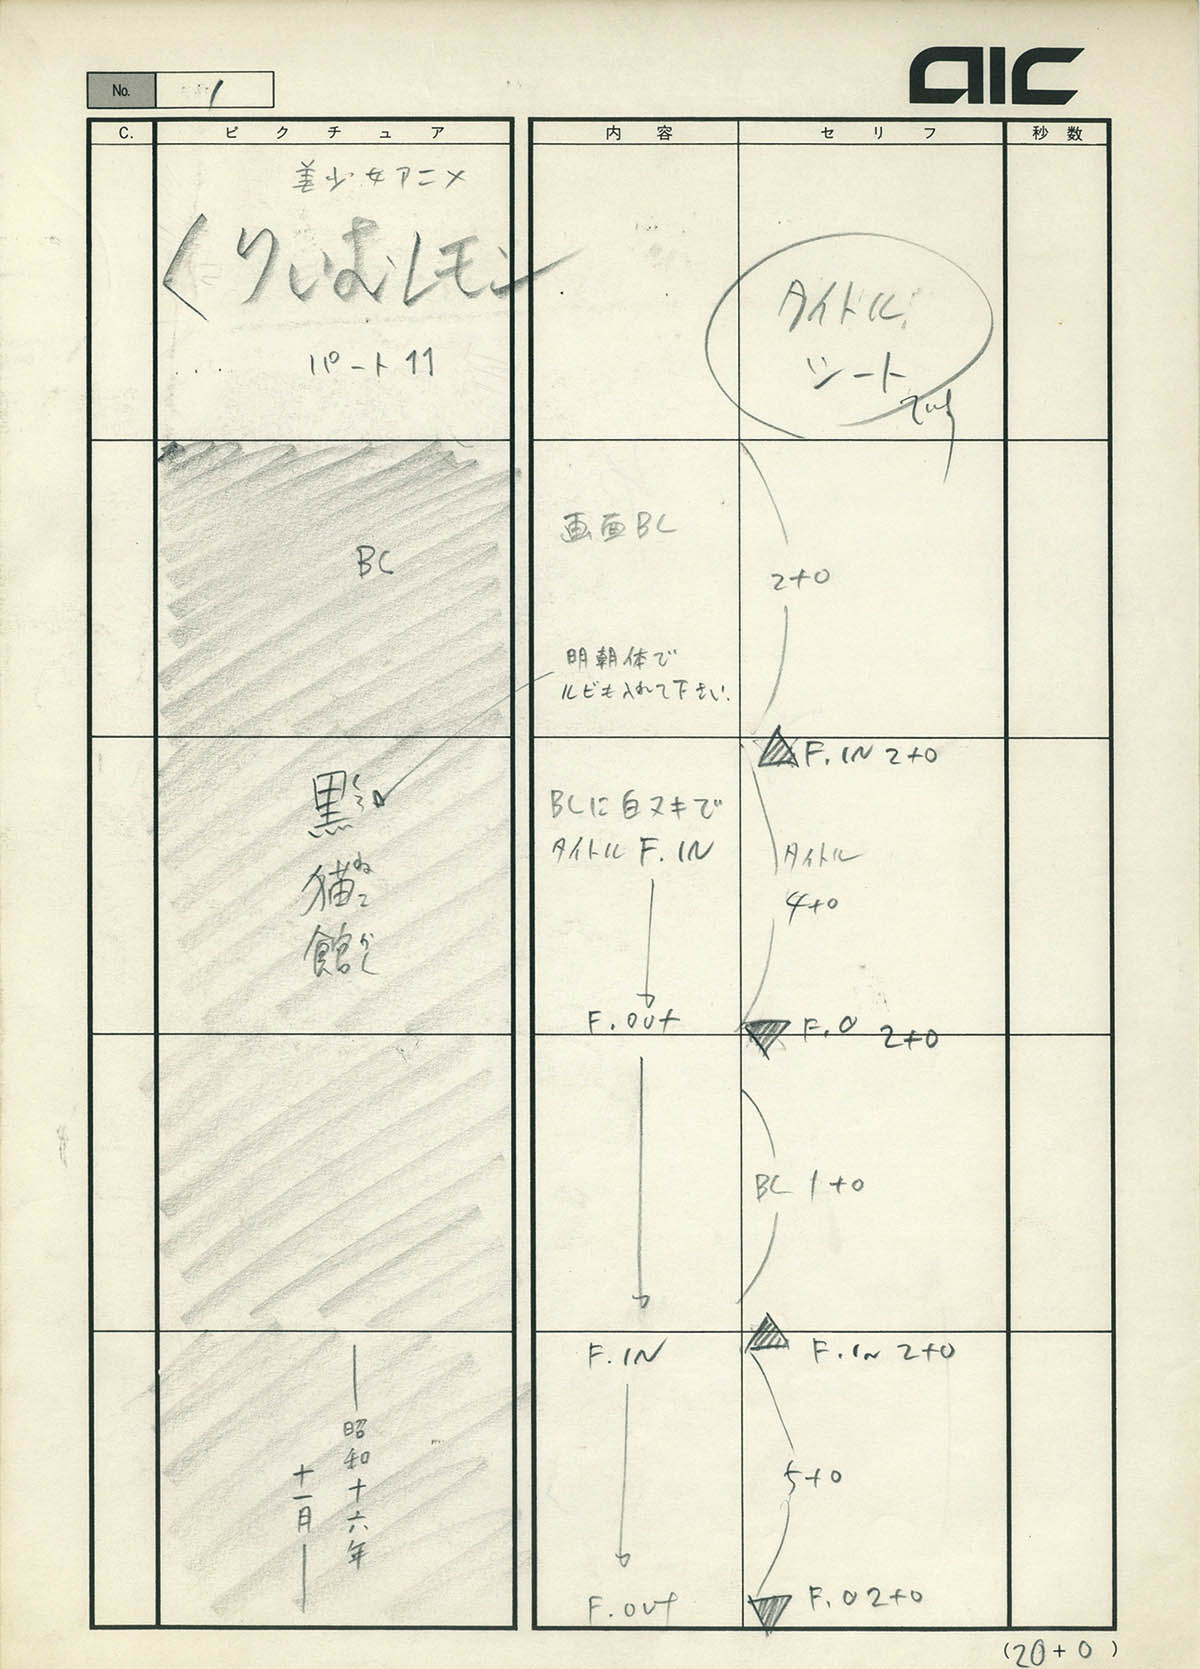 aic
No. 1
C. ピクチュア 内容 セリフ 秒数
美少女アニメ
くりいむレモン
パート11
タイトル
シート
BC
画面BC
2+0
明朝体で
ルビも入れて下さい.
F.IN 2+0
黒
くろ
猫
ねこ
館
かん
BCに白ヌキで
タイトル F.IN
タイトル
4+0
F.OUT
F.O 2+0
BC 1+0
F.IN
F.IN 2+0
昭和十六年
十一月
5+0
F.OUT
F.O 2+0
(20+0)